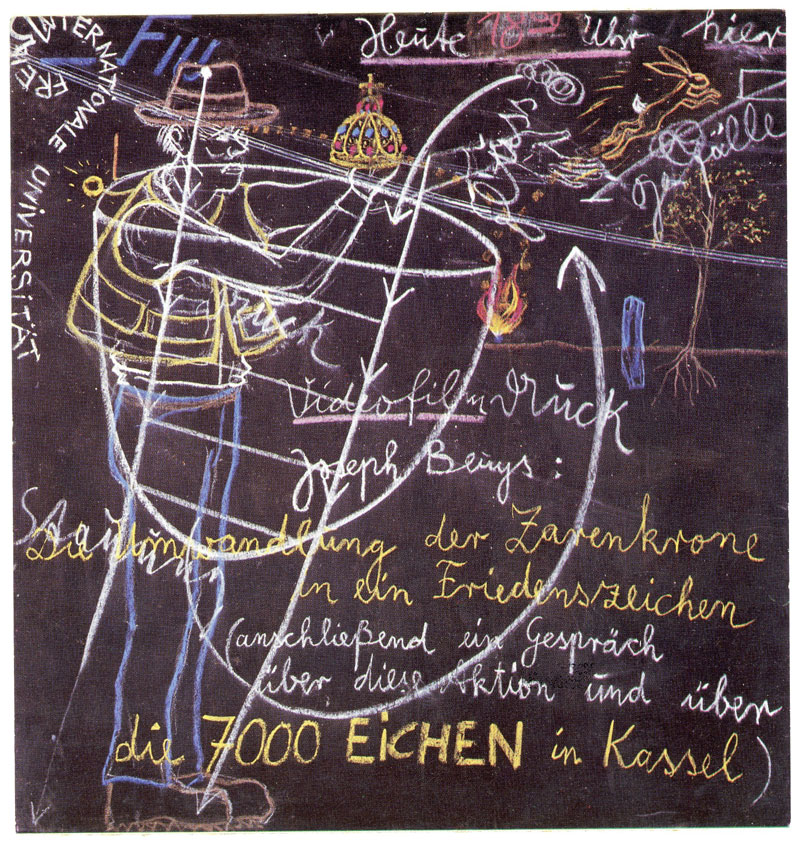 FIU
Heute 18 00 Uhr hier
FREIE
INTERNATIONALE UNIVERSITÄT
Gefälle
Druck
Videofilm Druck
Joseph Beuys:
Stauung
Die Umwandlung der Zarenkrone
in ein Friedenszeichen
(anschließend ein Gespräch
über diese Aktion und über
die 7000 EiCHEN in Kassel)